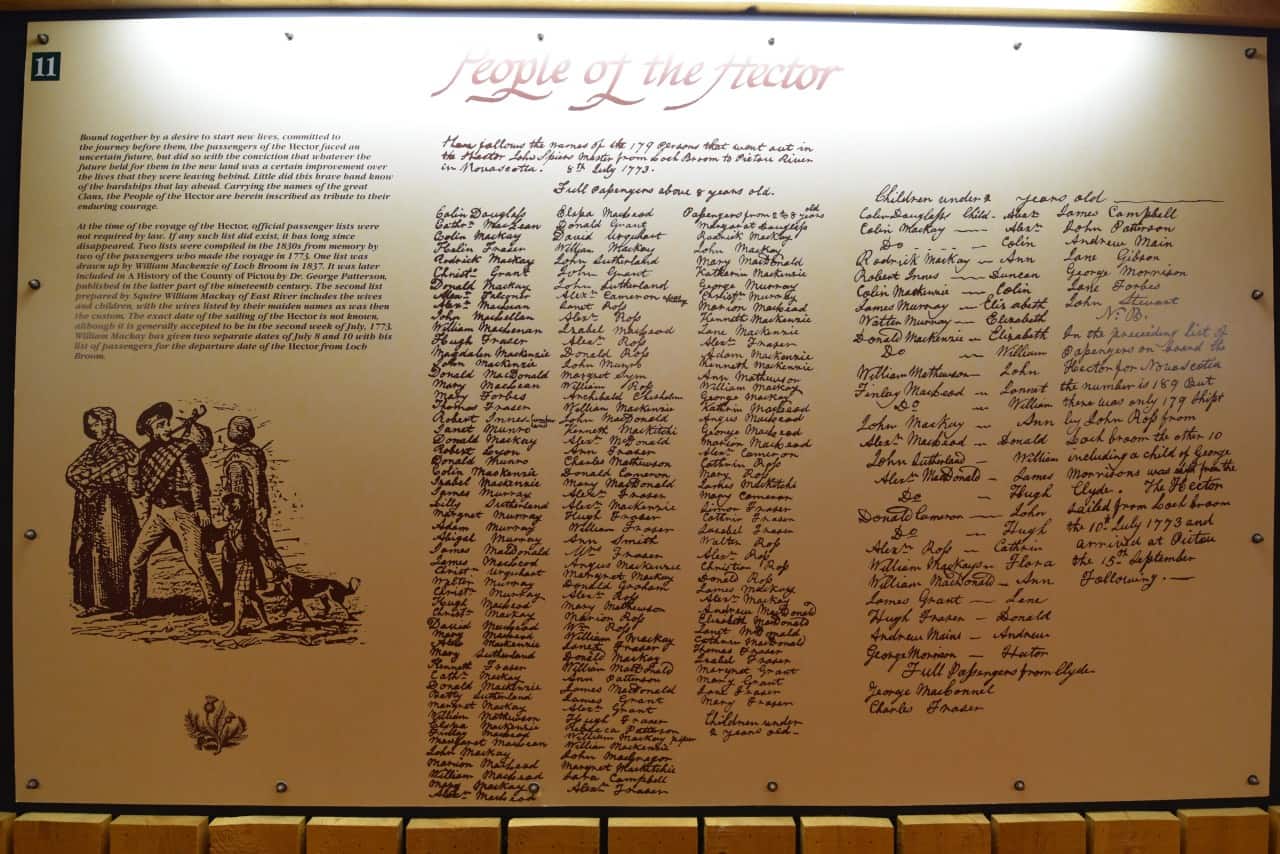 11
People of the Hector
Bound together by a desire to start new lives, committed to
the journey before them, the passengers of the Hector faced an
uncertain future, but did so with the conviction that whatever the
future held for them in the new land was a certain improvement over
the lives that they were leaving behind. Little did this brave band know
of the hardships that lay ahead. Carrying the names of the great
Clans, the People of the Hector are herein inscribed as tribute to their
enduring courage.
At the time of the voyage of the Hector, official passenger lists were
not required by law. If any such list did exist, it has long since
disappeared. Two lists were compiled in the 1830s from memory by
two of the passengers who made the voyage in 1773. One list was
drawn up by William Mackenzie of Loch Broom in 1837. It was later
included in A History of the County of Pictou by Dr. George Patterson,
published in the latter part of the nineteenth century. The second list
prepared by Squire William Mackay of East River includes the wives
and children, with the wives listed by their maiden names as was then
the custom. The exact date of the sailing of the Hector is not known,
although it is generally accepted to be in the second week of July, 1773.
William Mackay has given two separate dates of July 8 and 10 with his
list of passengers for the departure date of the Hector from Loch
Broom.
follows the names of the 179 persons that went out in
the Hector John Spiers Master from Loch Broom to Pictou River
in Novascotia. 8th July 1773.
Full Passengers above 8 years old.
Colin Douglass
Cathn MacLean
Colin Mackay
Fraser
Rodrick Mackay
Christn Grant
Donald Mackay
Alexr Falconer
Alexr MacLean
John MacLellan
William MacLenan
Hugh Fraser
Magdalen MacKenzie
John MacKenzie
Donald MacDonald
Mary MacLean
Mary Forbes
Thomas Fraser
Robert Innes
Janet Munro
Donald Mackay
Robert Lyon
Donald Munro
Colin Mackenzie
Isabel Mackenzie
James Murray
Lilly Sutherland
Margret Murray
Adam Murray
Abigal Murray
James MacDonald
James MacLeod
Christn Urquhart
Walter Murray
Christn Murray
Hugh MacLeod
Christn Mackay
David MacLeod
Mary MacLeod
MacKenzie
Mary Sutherland
Kenneth Fraser
Cathn Mackay
Donald MacKenzie
Betty Sutherland
Margret Mackay
William Mathewson
Elspa MacKenzie
Finlay MacLeod
Margaret MacLean
John Mackay
Marion MacLeod
William MacLeod
Mary Mackay
Alexr MacLeod
Elspa MacLeod
Donald Grant
David Urquhart
William Mackay
John Sutherland
John Grant
John Sutherland
Alexr Cameron
Janet Ross
Alexr Ross
Isabel MacLeod
Alexr Ross
Donald Ross
John Munro
Margret Sym
William Ross
Archibald Chisholm
William MacKenzie
John McDonald
Kenneth
Alexr McDonald
Ann Fraser
Charles Mathewson
Donald Cameron
Mary MacDonald
Alexr Fraser
Alexr MacKenzie
Hugh Fraser
William Fraser
Ann Smith
Mrs Fraser
Angus MacKenzie
Margret Mackay
Donald Graham
Alexr Ross
Mary Mathewson
Marion Ross
Wm Ross
William Mackay
Janet Fraser
Donald Mackay
William MacDonald
Ann Patterson
James MacDonald
James Grant
Alexr Grant
Hugh Fraser
Rebeca Patterson
William Mackay piper
William MacKenzie
John MacGregor
Margret
Sara Campbell
Alexr Fraser
Passengers from 2 to 8 years old
Margaret Douglass
Rodrick Mackay
John Mackay
Mary MacDonald
Katharin MacKenzie
George Murray
Christn Murray
Marion MacLeod
Kennett MacKenzie
Jane MacKenzie
Alexr Fraser
Adam MacKenzie
Kenneth MacKenzie
Ann Mathewson
William Mackay
George Mackay
Kathrin MacLeod
Angus MacLeod
George MacLeod
Marion MacLeod
Alexr Cameron
Cathrin Ross
Mary Ross
Mary Cameron
Simon Fraser
Cathrn Fraser
Isabel Fraser
Walter Ross
Alexr Ross
Christian Ross
Donald Ross
James Mackay
Alexr Mackay
Andrew MacDonald
Elizabeth MacDonald
Janet McDonald
Cathrin MacDonald
Thomas Fraser
Isabel Fraser
Margret Grant
Mary Grant
Jane Fraser
Mary Fraser
Children under
2 years old—
Children under 2 years old
Colin Douglass Child - Alexr
Colin Mackay — Alexr
Do - - - - Colin
Rodrick Mackay — Ann
Robert Innes — Duncan
Colin MacKenzie — Colin
James Murray — Elizabeth
Walter Murray — Elizabeth
Donald MacKenzie — Elizabeth
Do — William
William Mathewson — John
Finlay MacLeod — Jannet
Do — William
John MacKay — Ann
Alexr MacLeod — Donald
John Sutherland — William
Alexr MacDonald — James
Do — Hugh
Donald Cameron — John
Do — Hugh
Alexr Ross — Cathrin
William Mackays — Flora
William MacDonald — Ann
James Grant — Jane
Hugh Fraser — Donald
Andrew Mains — Andrew
George Morrison — Hector
Full Passengers from Clyde
George MacConnel
Charles Fraser
James Campbell
John Patterson
Andrew Main
Jane Gibson
George Morrison
Jane Forbes
John Stewart
N.B.
In the preceeding list of
Passengers on board the
Hector for Novascotia
the number is 189 But
there was only 179 Shipt
by John Ross from
Loch broom the other 10
including a child of George
Morrisons was from the
Clyde. The Hector
sailed from Loch broom
the 10th July 1773 and
arrived at Pictou
the 15th September
Following. —